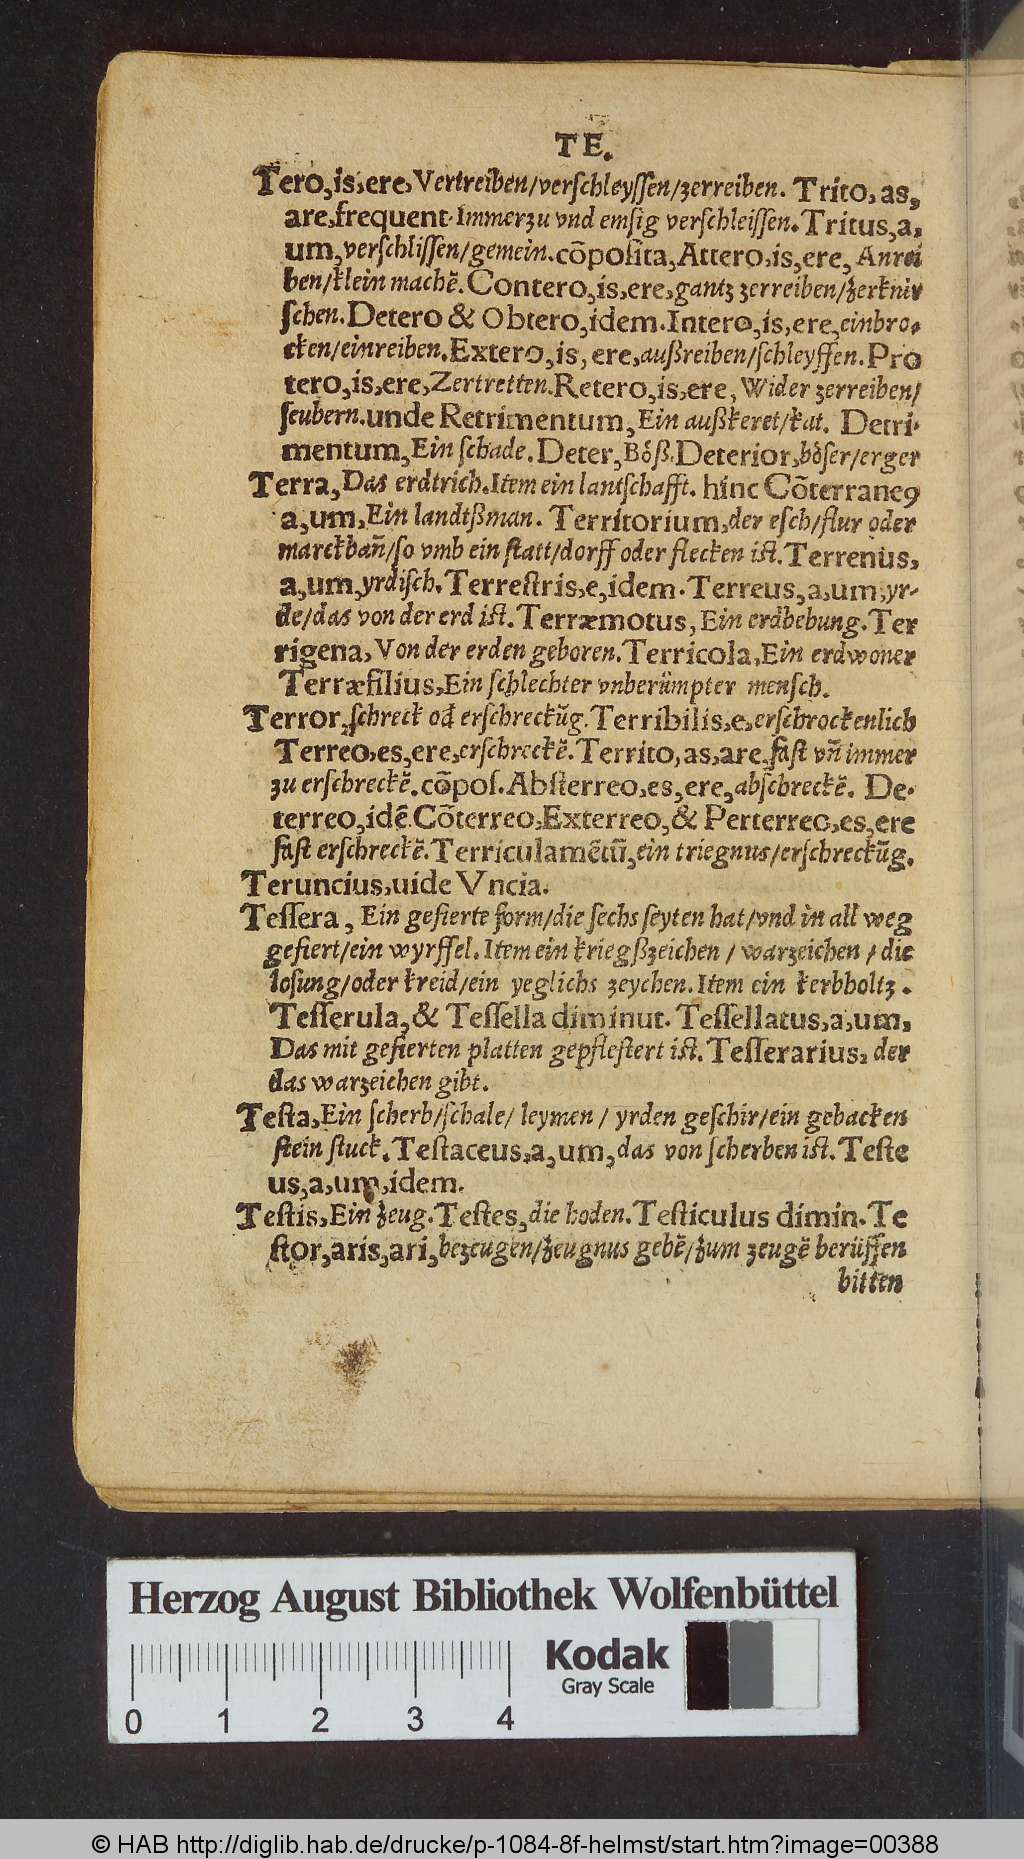 TE.
Tero, is, ere, Vertreiben/verſchleyſſen/zerreiben. Trito, as,
are, frequent. Immerzu vnd emſig verſchleiſſen. Tritus, a,
um, verſchliſſen/gemein. cõpoſita, Attero, is, ere, Anrei
ben/klein machẽ. Contero, is, ere, gantz zerreiben/zerknir
ſchen. Detero & Obtero, idem. Intero, is, ere, einbro-
cken/einreiben. Extero, is, ere, außreiben/ſchleyffen. Pro
tero, is, ere, Zertretten. Retero, is, ere, Wider zerreiben/
ſeubern. unde Retrimentum, Ein außkeret/kat. Detri-
mentum, Ein ſchade. Deter, Böß. Deterior, böſer/erger
Terra, Das erdtrich. Item ein lantſchafft. hinc Cõterraneꝰ
a, um, Ein landtßman. Territorium, der eſch/flur oder
marckbañ/ſo vmb ein ſtatt/dorff oder flecken iſt. Terrenus,
a, um, yrdiſch. Terreſtris, e, idem. Terreus, a, um, yr-
de/das von der erd iſt. Terræmotus, Ein erdbebung. Ter
rigena, Von der erden geboren. Terricola, Ein erdwoner
Terræfilius, Ein ſchlechter vnberümpter menſch.
Terror, ſchreck od̕ erſchreckũg. Terribilis, e, erſchrockenlich
Terreo, es, ere, erſchreckẽ. Territo, as, are, faſt vñ immer
zu erſchreckẽ. cõpoſ. Abſterreo, es, ere, abſchreckẽ. De-
terreo, idẽ. Cõterreo, Exterreo, & Perterreo, es, ere
faſt erſchreckẽ. Terriculamẽtũ, ein triegnus/erſchreckũg.
Teruncius, uide Vncia.
Teſſera, Ein gefierte form/die ſechs ſeyten hat/vnd in all weg
gefiert/ein wyrffel. Item ein kriegßzeichen/warzeichen/die
loſung/oder kreid/ein yeglichs zeychen. Item ein kerbholtz.
Teſſerula, & Teſſella diminut. Teſſellatus, a, um,
Das mit gefierten platten gepfleſtert iſt. Teſſerarius, der
das warzeichen gibt.
Teſta, Ein ſcherb/ſchale/leymen/yrden geſchir/ein gebacken
ſtein ſtuck. Teſtaceus, a, um, das von ſcherben iſt. Teſte
us, a, um, idem.
Teſtis, Ein zeug. Teſtes, die hoden. Teſticulus dimin. Te
ſtor, aris, ari, bezeugen/zeugnus gebẽ/zum zeugẽ berüffen
bitten
Herzog August Bibliothek Wolfenbüttel
Kodak
Gray Scale
0 1 2 3 4
© HAB http://diglib.hab.de/drucke/p-1084-8f-helmst/start.htm?image=00388